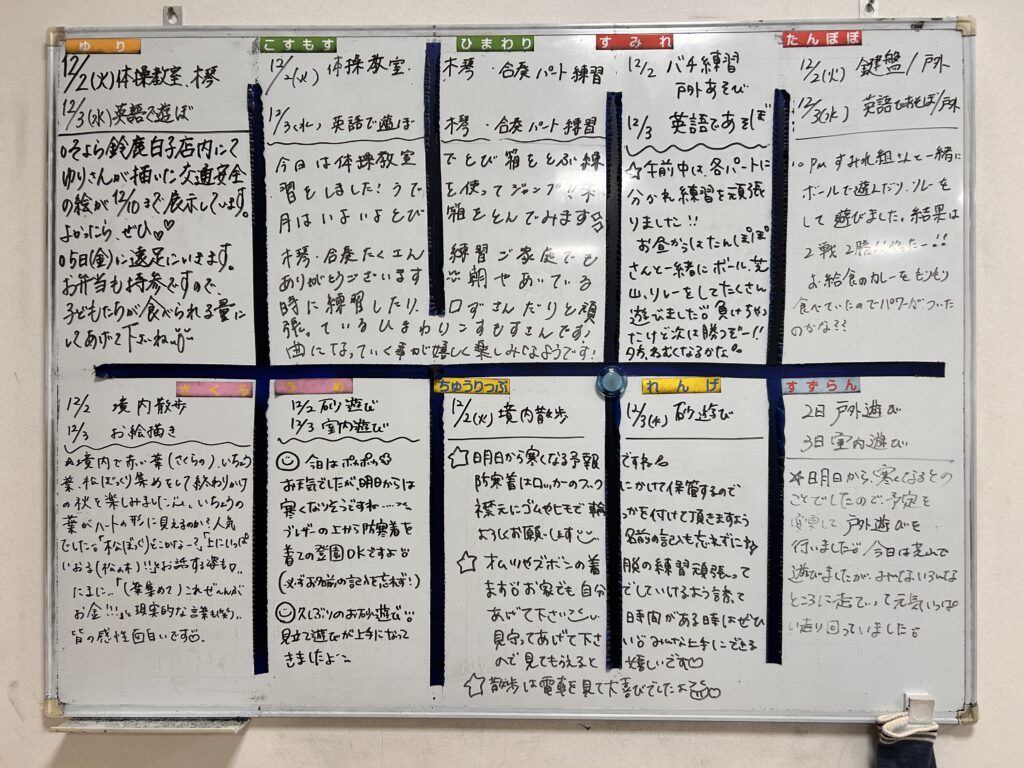 ゆり
12/2(火)体操教室、木琴
12/3(水)英語で遊ぼ
○そよら鈴鹿白子店内にて
ゆりさんが描いた交通安全
の絵が12/10まで展示しています。
よかったら、ぜひ♡♡
○5日(金)に遠足にいきます。
お弁当も持参ですので、
子どもたちが食べられる量に
してあげて下さいね
こすもす
12/2(火) 体操教室、
12/3(水) 英語で遊ぼ
ひまわり
木琴・合奏パート練習
木琴・合奏パート練習
今日は体操教室でとび箱をとぶ練
習をしました!うでを使ってジャンプ!!来
月はいよいよとび箱をとんでみます☆
木琴・合奏たくさん練習ご家庭でも
ありがとうございます 朝やあいている
時に練習したり、口ずさんだりと頑
張っているひまわりこすもすさんです!
曲になっていく事が嬉しく楽しみなようです!
すみれ
12/2 バチ練習
戸外あそび
12/3 英語であそぼ
☆午前中は、各パートに
分かれ練習を頑張
りました!!
お昼からはたんぽぽ
さんと一緒にボール、芝
山、リレーをしてたくさん
遊びました 負けちゃっ
たけど次は勝つぞー!!
夕方ねむくなるかな。
たんぽぽ
12/2(火) 鍵盤/戸外
12/3(水) 英語であそぼ/戸外
○PM すみれ組さんと一緒に
ボールで遊んだり、リレーを
して遊びました。結果は
2戦2勝!!やったー!!
お給食のカレーをもりもり
食べていたのでパワーがついた
のかな??
さくら
12/2 境内散歩
12/3 お絵描き
境内で赤い葉(さくらの)、いちょう
葉、松ぼっくり集めをして終わりかけ
の秋を楽しみました いちょうの
葉がハートの形に見えるのか?人気
でした 「松ぼっくりどこかなー?」「上にいっぱ
いおる(松の木)!!」とお話する姿も♡
たまに…「(葉集め?)これぜーんぶ
お金!!!」と現実的な言葉も
皆の感性面白いです
うめ
12/2 砂遊び
12/3 室内遊び
今日はポカポカ
お天気でしたが、明日からは
寒くなりそうですね……
ブレザーの上から防寒着を
着ての登園OKですよ
(必ずお名前の記入を忘れず!)
久しぶりのお砂遊び
見立て遊びが上手になって
きましたよ
ちゅうりっぷ
12/2(火) 境内散歩
れんげ
12/3(水) 砂遊び
☆明日から寒くなる予報ですね
防寒着はロッカーのフックにかけて保管するので
襟元にゴムやヒモで輪っかを付けて頂きますよう
よろしくお願いします 名前の記入も忘れずに
☆オムツやズボンの着脱の練習頑張って
ます お家でも自分でしていけるよう誘って
あげて下さい 時間がある時はぜひ
見守ってあげて下さい みんな上手にできる
ので見てもらえると嬉しいです♡
☆散歩は電車を見て大喜びでしたよ
すずらん
2日 戸外遊び
3日 室内遊び
☆明日から、寒くなるとの
ことでしたので、予定を
変更して戸外遊びを
行いました 今日は芝山で
遊びましたが、みんないろんな
ところに走って行って元気いっぱ
い走り回っていました